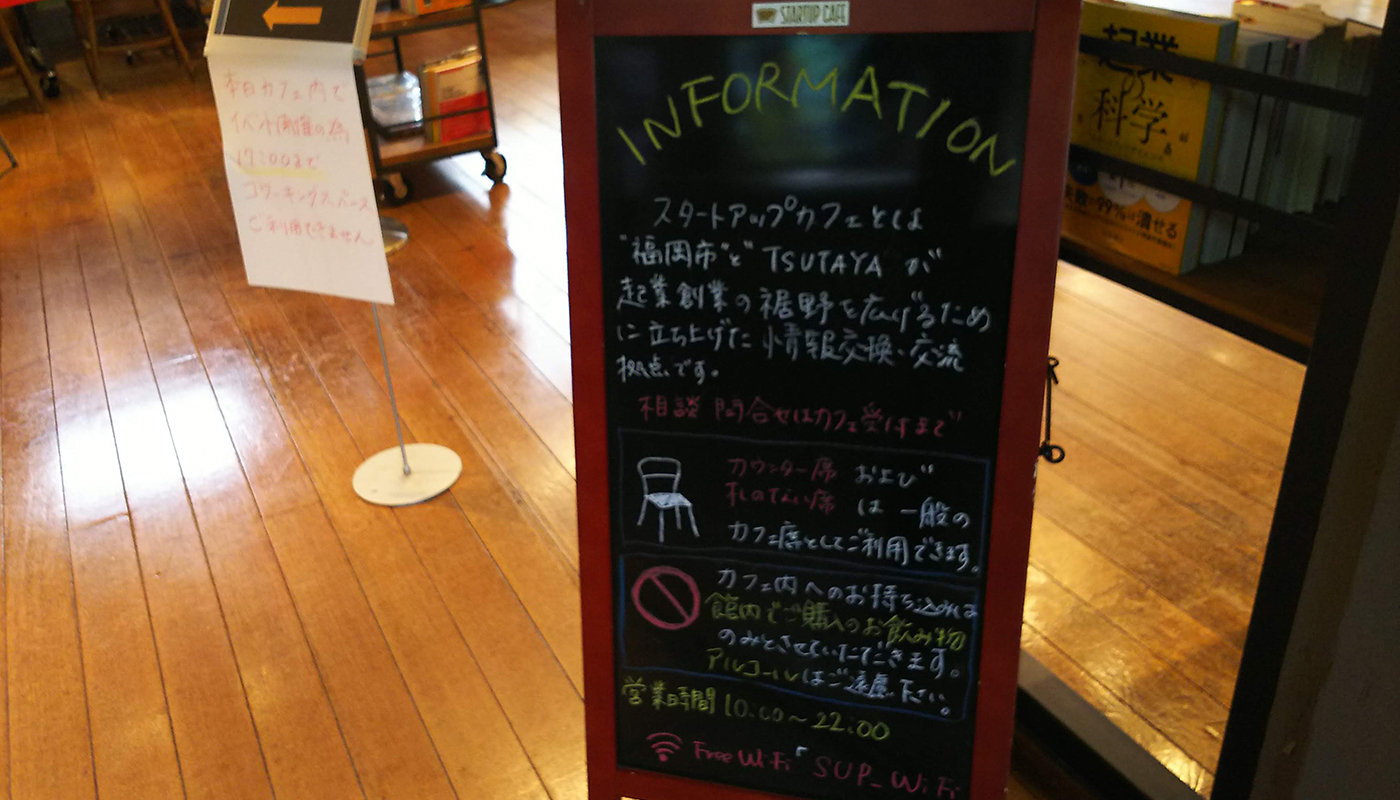 STARTUP CAFE
INFORMATION
スタートアップカフェとは
"福岡市"と"TSUTAYAが"
起業創業の裾野を広げるため
に立ち上げた情報交換・交流
拠点です。
相談 問合せはカフェ受付まで
カウンター席 および
札のてない席 は 一般の
カフェ席としてご利用できます。
カフェ内へのお持ち込みは
館内でご購入のお飲み物
のみとさせていただきます。
アルコールはご遠慮下さい。
営業時間 10:00〜22:00
Free Wi-Fi「SUP_WiFi
本日カフェ内で
イベント開催の為
17:00まで
コワーキングスペース
ご利用できません
起業
の
科学
99%は潰せる